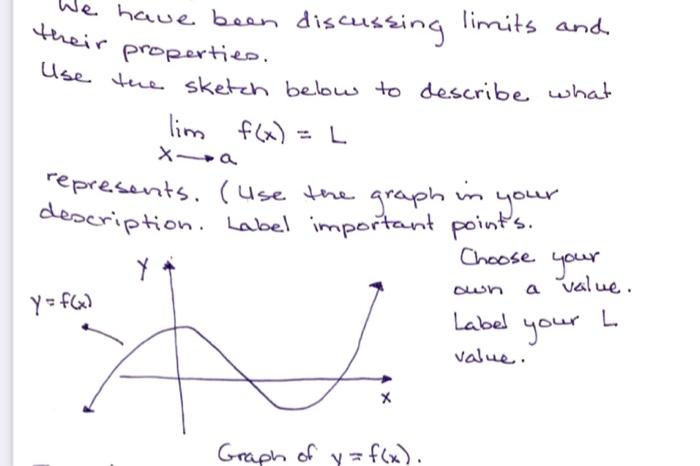 We have been discussing limits and
their properties.
Use the sketch below to describe what
lim f(x) = L
x→a
represents. (Use the graph in your
description. Label important points.
Choose your
own a value.
Label your L
value.
Y
y=f(x)
x
Graph of y=f(x).